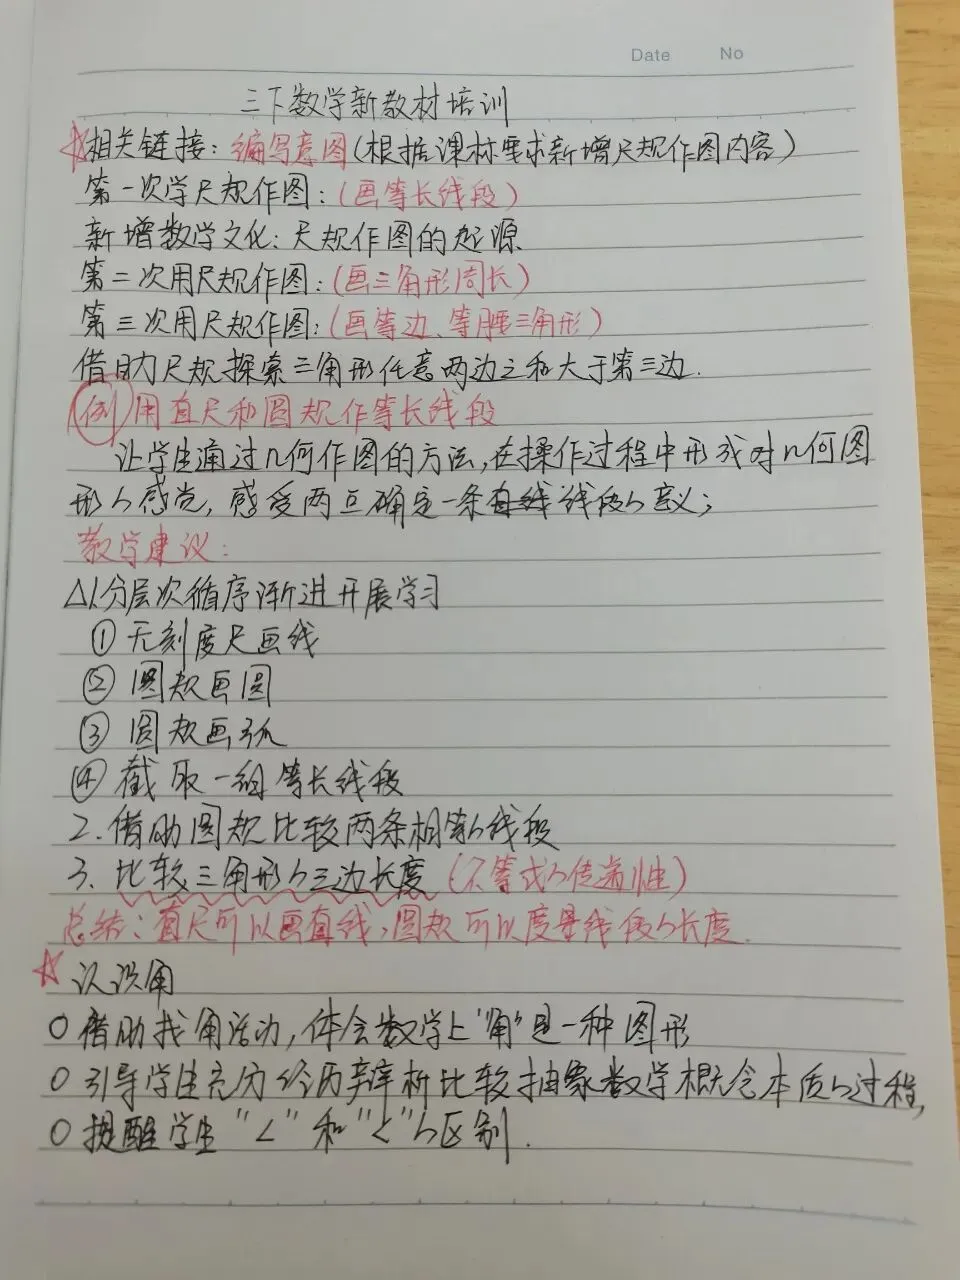 Date No
三下数学新教材培训
☆相关链接：编写意图(根据课标要求新增尺规作图内容)
第一次学尺规作图：(画等长线段)
新增数学文化：尺规作图的起源
第二次用尺规作图：(画三角形周长)
第三次用尺规作图：(画等边、等腰三角形)
借助尺规探索三角形任意两边之和大于第三边.
例 用直尺和圆规作等长线段
让学生通过几何作图的方法,在操作过程中形成对几何图
形的感觉,感受两点确定一条直线 线段的意义;
教学建议：
△1.分层次循序渐进开展学习
① 无刻度尺画线
② 圆规画圆
③ 圆规画弧
④ 截取一组等长线段
2.借助圆规比较两条相等的线段
3.比较三角形的三边长度(不等式的传递性)
总结：直尺可以画直线,圆规可以度量线段的长度.
☆ 认识角
○ 借助找角活动,体会数学上"角"是一种图形
○ 引导学生充分经历辨析比较抽象数学概念本质的过程,
○ 提醒学生"∠"和"<"的区别.